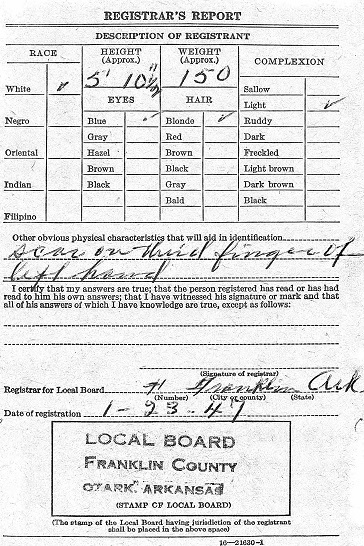 REGISTRAR'S REPORT
DESCRIPTION OF REGISTRANT
RACE
HEIGHT (Approx.)
WEIGHT (Approx.)
COMPLEXION
5' 10½"
150
White ✓
Sallow
EYES
HAIR
Light ✓
Negro
Blue ✓
Blonde ✓
Ruddy
Gray
Red
Dark
Oriental
Hazel
Brown
Freckled
Brown
Black
Light brown
Indian
Black
Gray
Dark brown
Bald
Black
Filipino
Other obvious physical characteristics that will aid in identification
scar on third finger of
left hand
I certify that my answers are true; that the person registered has read or has had
read to him his own answers; that I have witnessed his signature or mark and that
all of his answers of which I have knowledge are true, except as follows:
(Signature of registrar)
Registrar for Local Board Franklin Ark
(Number) (City or county) (State)
Date of registration 1-23-47
LOCAL BOARD
FRANKLIN COUNTY
OZARK, ARKANSAS
(STAMP OF LOCAL BOARD)
(The stamp of the Local Board having jurisdiction of the registrant
shall be placed in the above space)
16—21630-1